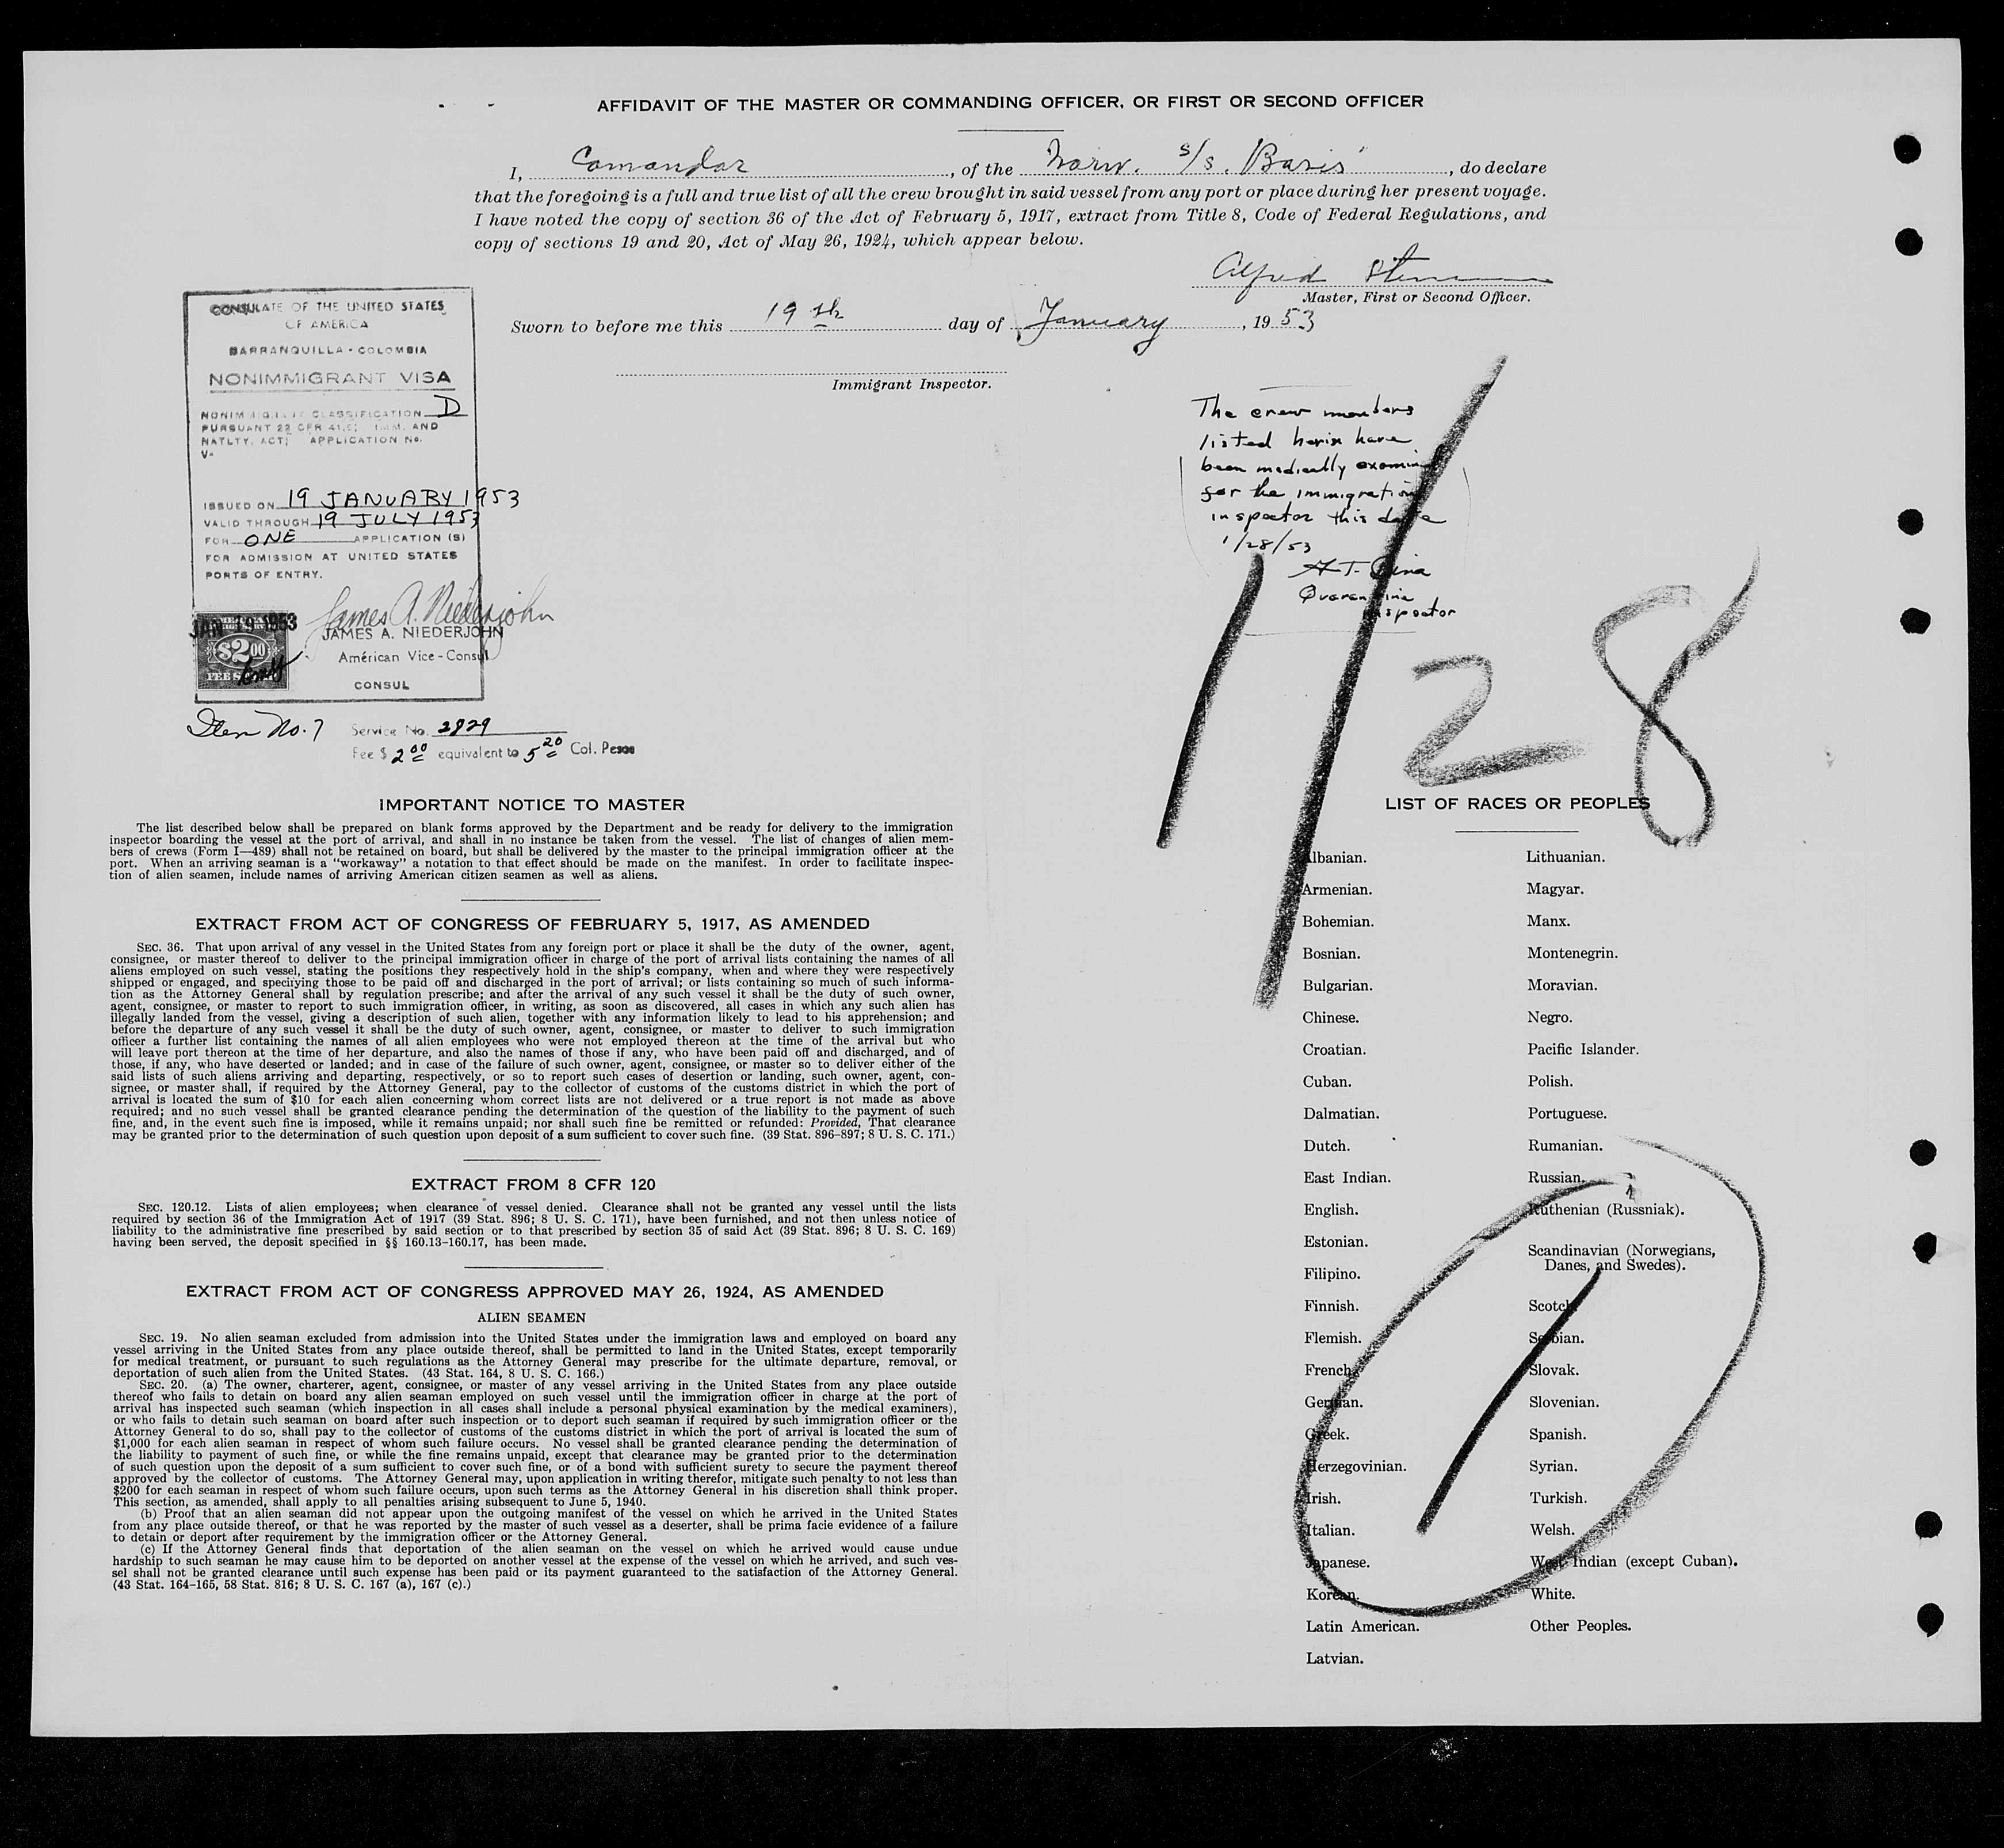 AFFIDAVIT OF THE MASTER OR COMMANDING OFFICER, OR FIRST OR SECOND OFFICER
I, Comandor, of the Norw. s/s. "Baris", do declare
that the foregoing is a full and true list of all the crew brought in said vessel from any port or place during her present voyage.
I have noted the copy of section 36 of the Act of February 5, 1917, extract from Title 8, Code of Federal Regulations, and
copy of sections 19 and 20, Act of May 26, 1924, which appear below.
Alfred
Master, First or Second Officer.
Sworn to before me this 19th day of January, 1953
Immigrant Inspector.
CONSULATE OF THE UNITED STATES
OF AMERICA
BARRANQUILLA - COLOMBIA
NONIMMIGRANT VISA
NONIMMIGRANT CLASSIFICATION D
PURSUANT 22 CFR 41.5; IMM. AND
NATLTY. ACT; APPLICATION No.
V-
ISSUED ON 19 JANUARY 1953
VALID THROUGH 19 JULY 1953
FOR ONE APPLICATION (S)
FOR ADMISSION AT UNITED STATES
PORTS OF ENTRY.
James A. Niederjohn
JAN 19 1953
$2.00
JAMES A. NIEDERJOHN
Américan Vice-Consul
CONSUL
Item No. 7 Service No. 2829
Fee $ 2 00 equivalent to 5 20 Col. Pesos
The crew members
listed herin have
been medically examin
for the immigration
inspector this date
1/28/53
A.T.
Quarantine
Inspector
1/28
1
IMPORTANT NOTICE TO MASTER
The list described below shall be prepared on blank forms approved by the Department and be ready for delivery to the immigration
inspector boarding the vessel at the port of arrival, and shall in no instance be taken from the vessel. The list of changes of alien mem-
bers of crews (Form I—489) shall not be retained on board, but shall be delivered by the master to the principal immigration officer at the
port. When an arriving seaman is a "workaway" a notation to that effect should be made on the manifest. In order to facilitate inspec-
tion of alien seamen, include names of arriving American citizen seamen as well as aliens.
EXTRACT FROM ACT OF CONGRESS OF FEBRUARY 5, 1917, AS AMENDED
SEC. 36. That upon arrival of any vessel in the United States from any foreign port or place it shall be the duty of the owner, agent,
consignee, or master thereof to deliver to the principal immigration officer in charge of the port of arrival lists containing the names of all
aliens employed on such vessel, stating the positions they respectively hold in the ship's company, when and where they were respectively
shipped or engaged, and specifying those to be paid off and discharged in the port of arrival; or lists containing so much of such informa-
tion as the Attorney General shall by regulation prescribe; and after the arrival of any such vessel it shall be the duty of such owner,
agent, consignee, or master to report to such immigration officer, in writing, as soon as discovered, all cases in which any such alien has
illegally landed from the vessel, giving a description of such alien, together with any information likely to lead to his apprehension; and
before the departure of any such vessel it shall be the duty of such owner, agent, consignee, or master to deliver to such immigration
officer a further list containing the names of all alien employees who were not employed thereon at the time of the arrival but who
will leave port thereon at the time of her departure, and also the names of those if any, who have been paid off and discharged, and of
those, if any, who have deserted or landed; and in case of the failure of such owner, agent, consignee, or master so to deliver either of the
said lists of such aliens arriving and departing, respectively, or so to report such cases of desertion or landing, such owner, agent, con-
signee, or master shall, if required by the Attorney General, pay to the collector of customs of the customs district in which the port of
arrival is located the sum of $10 for each alien concerning whom correct lists are not delivered or a true report is not made as above
required; and no such vessel shall be granted clearance pending the determination of the question of the liability to the payment of such
fine, and, in the event such fine is imposed, while it remains unpaid; nor shall such fine be remitted or refunded: Provided, That clearance
may be granted prior to the determination of such question upon deposit of a sum sufficient to cover such fine. (39 Stat. 896–897; 8 U. S. C. 171.)
EXTRACT FROM 8 CFR 120
SEC. 120.12. Lists of alien employees; when clearance of vessel denied. Clearance shall not be granted any vessel until the lists
required by section 36 of the Immigration Act of 1917 (39 Stat. 896; 8 U. S. C. 171), have been furnished, and not then unless notice of
liability to the administrative fine prescribed by said section or to that prescribed by section 35 of said Act (39 Stat. 896; 8 U. S. C. 169)
having been served, the deposit specified in §§ 160.13–160.17, has been made.
EXTRACT FROM ACT OF CONGRESS APPROVED MAY 26, 1924, AS AMENDED
ALIEN SEAMEN
SEC. 19. No alien seaman excluded from admission into the United States under the immigration laws and employed on board any
vessel arriving in the United States from any place outside thereof, shall be permitted to land in the United States, except temporarily
for medical treatment, or pursuant to such regulations as the Attorney General may prescribe for the ultimate departure, removal, or
deportation of such alien from the United States. (43 Stat. 164, 8 U. S. C. 166.)
SEC. 20. (a) The owner, charterer, agent, consignee, or master of any vessel arriving in the United States from any place outside
thereof who fails to detain on board any alien seaman employed on such vessel until the immigration officer in charge at the port of
arrival has inspected such seaman (which inspection in all cases shall include a personal physical examination by the medical examiners),
or who fails to detain such seaman on board after such inspection or to deport such seaman if required by such immigration officer or the
Attorney General to do so, shall pay to the collector of customs of the customs district in which the port of arrival is located the sum of
$1,000 for each alien seaman in respect of whom such failure occurs. No vessel shall be granted clearance pending the determination of
the liability to payment of such fine, or while the fine remains unpaid, except that clearance may be granted prior to the determination
of such question upon the deposit of a sum sufficient to cover such fine, or of a bond with sufficient surety to secure the payment thereof
approved by the collector of customs. The Attorney General may, upon application in writing therefor, mitigate such penalty to not less than
$200 for each seaman in respect of whom such failure occurs, upon such terms as the Attorney General in his discretion shall think proper.
This section, as amended, shall apply to all penalties arising subsequent to June 5, 1940.
(b) Proof that an alien seaman did not appear upon the outgoing manifest of the vessel on which he arrived in the United States
from any place outside thereof, or that he was reported by the master of such vessel as a deserter, shall be prima facie evidence of a failure
to detain or deport after requirement by the immigration officer or the Attorney General.
(c) If the Attorney General finds that deportation of the alien seaman on the vessel on which he arrived would cause undue
hardship to such seaman he may cause him to be deported on another vessel at the expense of the vessel on which he arrived, and such ves-
sel shall not be granted clearance until such expense has been paid or its payment guaranteed to the satisfaction of the Attorney General.
(43 Stat. 164–165, 58 Stat. 816; 8 U. S. C. 167 (a), 167 (c).)
LIST OF RACES OR PEOPLES
Albanian.
Armenian.
Bohemian.
Bosnian.
Bulgarian.
Chinese.
Croatian.
Cuban.
Dalmatian.
Dutch.
East Indian.
English.
Estonian.
Filipino.
Finnish.
Flemish.
French.
German.
Greek.
Herzegovinian.
Irish.
Italian.
Japanese.
Korean.
Latin American.
Latvian.
Lithuanian.
Magyar.
Manx.
Montenegrin.
Moravian.
Negro.
Pacific Islander.
Polish.
Portuguese.
Rumanian.
Russian.
Ruthenian (Russniak).
Scandinavian (Norwegians,
Danes, and Swedes).
Scotch.
Serbian.
Slovak.
Slovenian.
Spanish.
Syrian.
Turkish.
Welsh.
West Indian (except Cuban).
White.
Other Peoples.